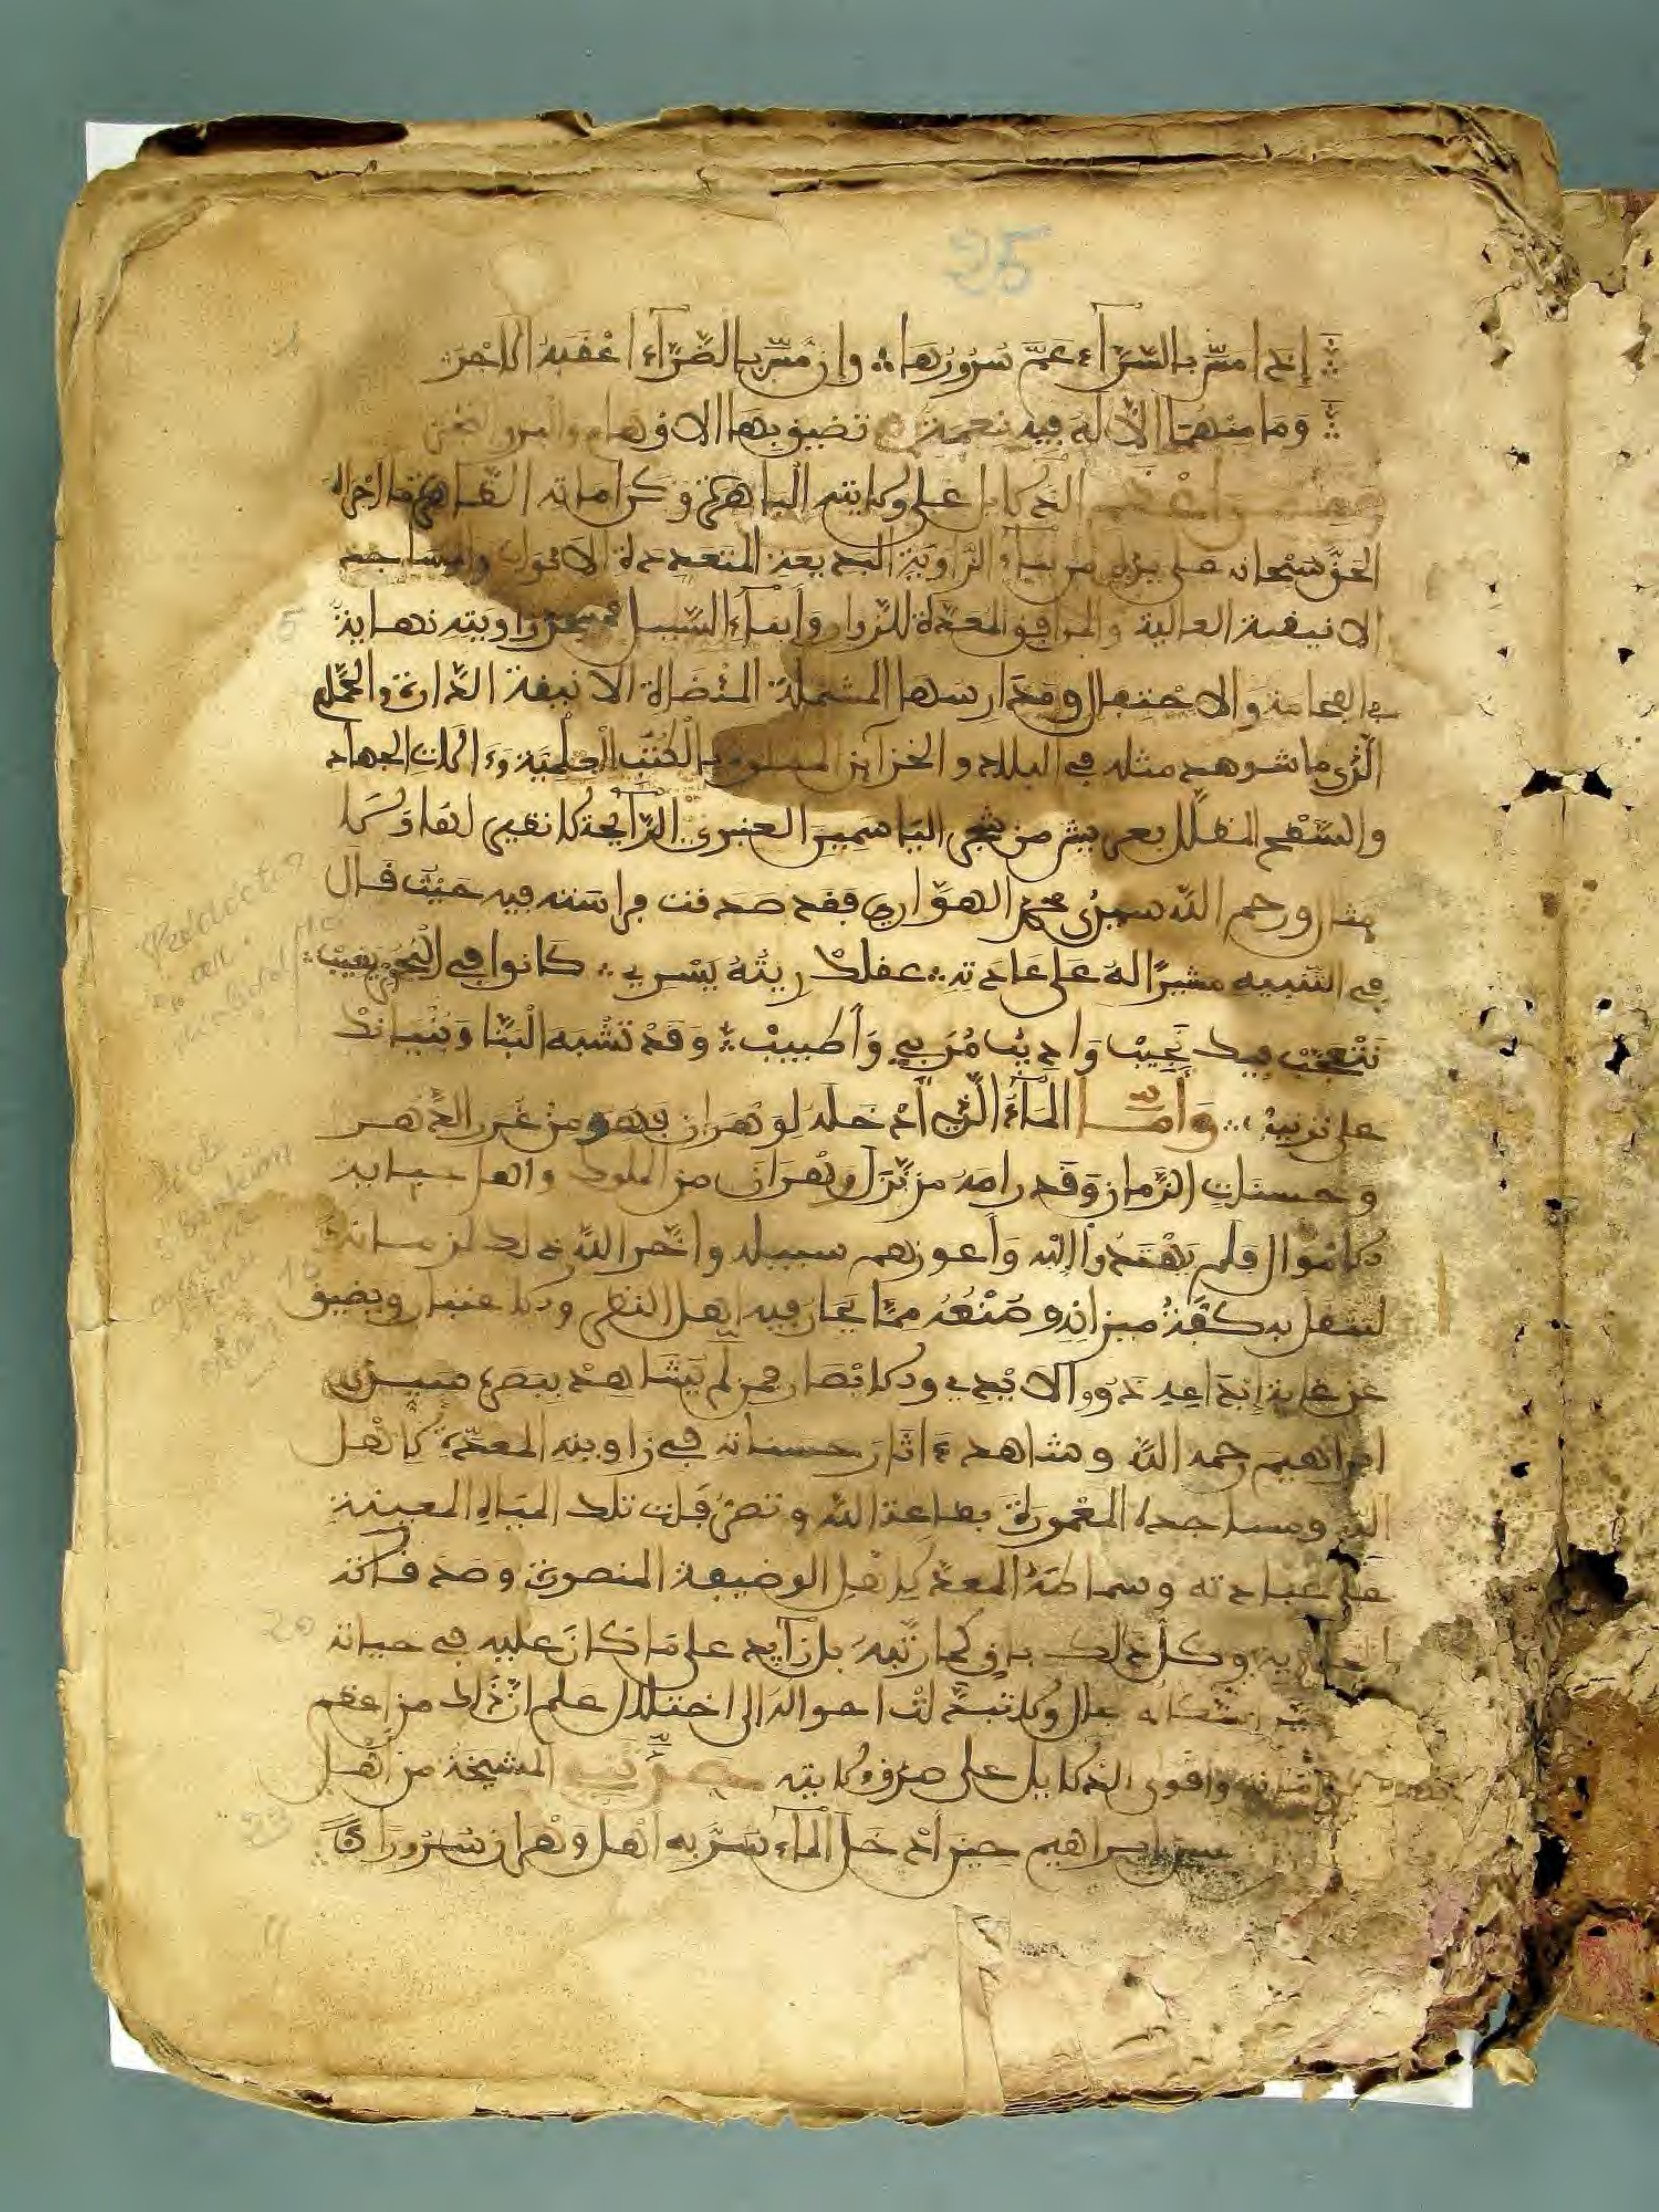 25
إذا مس بالسَّرّاء عمَّ سُرُورُهَا ∴ وإن مسّ بالضَّرّاء اعْقَبهُ الاجْرُ
∴ وَمَا مِنْهُمَا إلاّ لهُ فيه نعمة تضيق بهَا الاوْهام والبر والبحر
الدلايل على ولايته الباهرة وكراماته الظاهرة ما اجراه
الحق سبحانه على يديه من بناء الزّاوية البديعة المتعددة الابواب والمساجد
5
الانيقة العالية والمرافق المعَدّة للزّوار وأبناء السّبيل زاويته نهاية
في الفخامة والاحتفال ومدارسها المشتملة الانيقة الدارة والحمّام
الّذي ما شوهد مثله في البلاد والخزاين المملوة بالكُتُب العِلْمِيّة وءالات الجهاد
والسّطح المظلّل بعريش من شجر الياسمين العنبري الرّايحة لا نظير لها ولا
مثال ورحم الله سيدي محمد الهوّاري فقد صدقت فراسته فيه حيث قال
في التنبيه مشيرًا لهُ عَلى عَادته ∴ عقلكْ ريتُهُ يَسْرِي ∴ كانوا في البحُور يغيبْ ∴
نتْعجّبْ فيك نجيبْ وَاديب مُرَبي وَاطبيبْ ∴ وَقدْ تشْبه الْبنّا وَبُنْيانكْ
على ترتيبْ ∴ وَأمّا المَاءُ الّذي أدْخله لوهران فهو من غرر الدّهر
وحسنات الزّمان وَقد رامَهُ من نَزَل وهْرَان من الملوك واهل جباية
الاموال فلم يَهْتدُوا إليْه وَأعوزهم سبيله وادّخر الله ذلك لزمانه
15
لتثقل به كفّة ميزانه وصُنْعُهُ ممّا يحار فيه اهل النظر والاعتبار ويضيق
عن غاية إبداعه ذوو الايْدي والابْصار فمن لم يشَاهدْ ببصره سيدي
ابراهيم رحمه الله وشاهد ءاثار حسناته في زاويته المعدّة لاهل
الله ومساجده المعْمورة بطاعة الله وتصرّفات تلك المياه المعينة
على عباداته وسماطهُ المعدّ لاهل الوضيفة المنصوبة وصدقاته
20
الجارية وكلّ ذلك باق كما رتبه بل زايد على ما كان عليه في حياته
اشكاله بحال ولا تبدّلت احواله الى اختلال علم انّ ذلك من اعظم
كراماته واقوى الدلايل على صدق ولايته حدّثني المشيخة من أهل
25
سيدي ابراهيم حين أدخل الماء سُرّ به أهل وَهْران سُرُورًا
Redaction